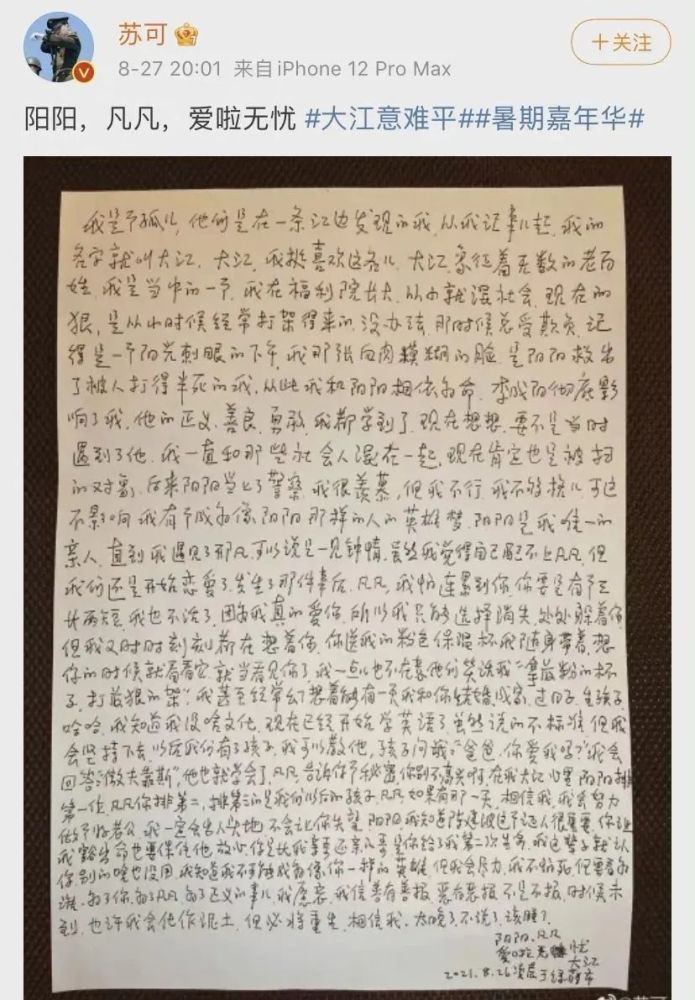 苏可
+关注
8-27 20:01 来自 iPhone 12 Pro Max
阳阳，凡凡，爱啦无忧 #大江意难平##暑期嘉年华#
我是个孤儿，他们是在一条江边发现的我，从我记事儿起，我的
名字就叫大江，大江，我挺喜欢这名儿，大江象征着无数的老百
姓，我是当中的一个，我在福利院长大，从小就混社会，现在的
狠，是从小时候经常打架得来的，没办法，那时候总受欺负，记
得是一个阳光刺眼的下午，我那张血肉模糊的脸，是阳阳救出
了被人打得半死的我，从此我和阳阳相依为命，李成阳彻底影
响了我，他的正义、善良、勇敢，我都学到了，现在想想，要不是当时
遇到了他，我一直和那些社会人混在一起，现在肯定也是被扫
的对象，后来阳阳当上了警察，我很羡慕，但我不行，我不够格儿，可这
不影响我有个成为像阳阳那样的人的英雄梦，阳阳是我唯一的
亲人，直到我遇见了凡凡，可以说是一见钟情，虽然我觉得自己配不上凡凡，但
我们还是开始恋爱了，发生了那件事后，凡凡，我怕连累到你，你要是有个三
长两短，我也不活了，因为我真的爱你，所以我只能选择消失，处处躲着你，
但我又时时刻刻都在想着你，你送我的粉色保温杯我随身带着，想
你的时候就看看它，就当看见你了，我一点儿也不在意他们笑话我"拿最粉的杯
子，打最狠的架"，我甚至经常幻想着能有一天我和你结婚，成家，过日子，生孩子，
哈哈，我知道我没啥文化，现在已经开始学英语了，虽然说的不标准，但我
会坚持下去，以后我们有了孩子，我可以教他，孩子问我："爸爸，你爱我吗？"我会
回答："做夫靠斯"，他也就学会了，凡凡，告诉你个秘密你别不高兴啊，在我大江心里阳阳排
第一位，凡凡你排第二，排第三的是我们以后的孩子，凡凡，如果有那一天，相信我，我会努力
做个好老公，我一定会出人头地，不会让你失望，阳阳，我知道陈建波这个证人很重要，你让
我豁出命也要保住他，放心，你是比我亲哥还亲的哥，是你给了我第二次生命，我这辈子就认
你，别的啥也没用，我知道我不可能成为像你一样的英雄，但我会尽力，我不怕死，但要看为
谁，为了你，为了凡凡，为了正义的事儿，我愿意，我信善有善报，恶有恶报，不是不报，时候未
到，也许我会化作泥土，但必将重生，相信我，太晚了，不说了，该睡了，
阳阳，凡凡
爱啦无忧
大江
2021.8.26凌晨于绿藤市